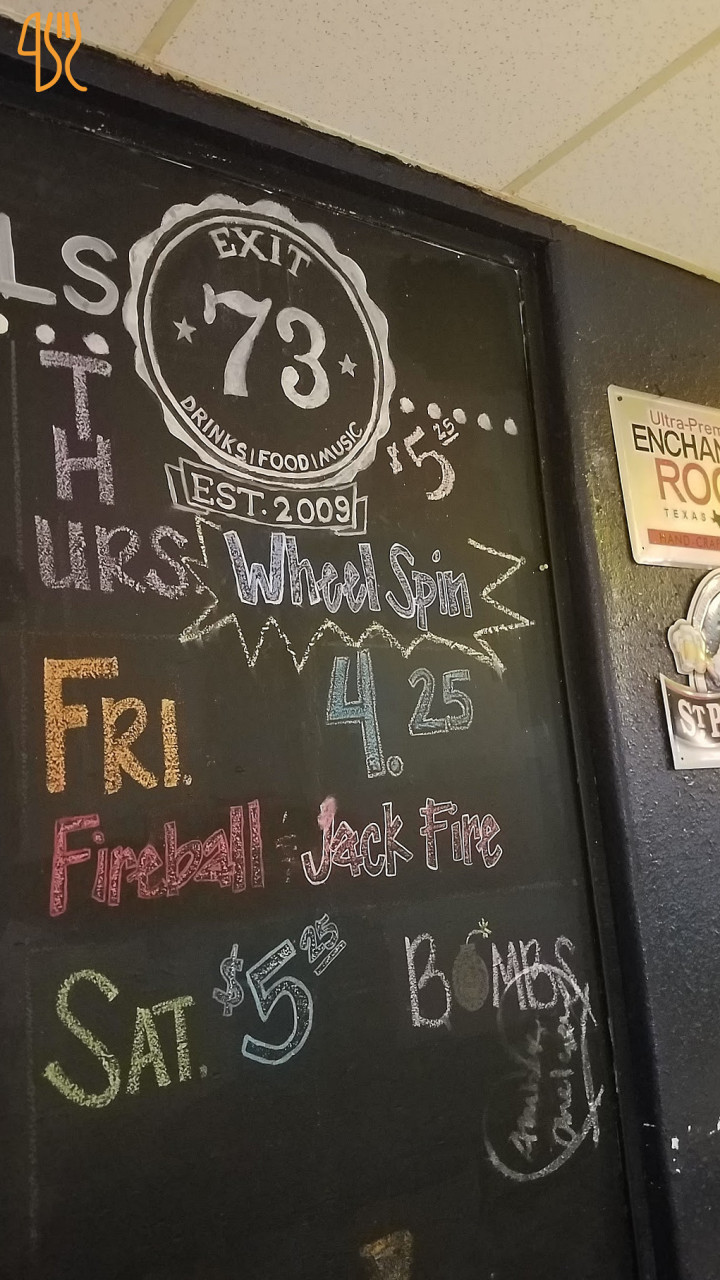 LS
EXIT
73
DRINKS | FOOD | MUSIC
EST. 2009
THURS
$5.25
Wheel Spin
FRI.
4.25
Fireball Jack Fire
SAT.
$5.25
BOMBS
Ultra-Prem
ENCHAN
ROC
TEXAS
HAND-CRA
ST P